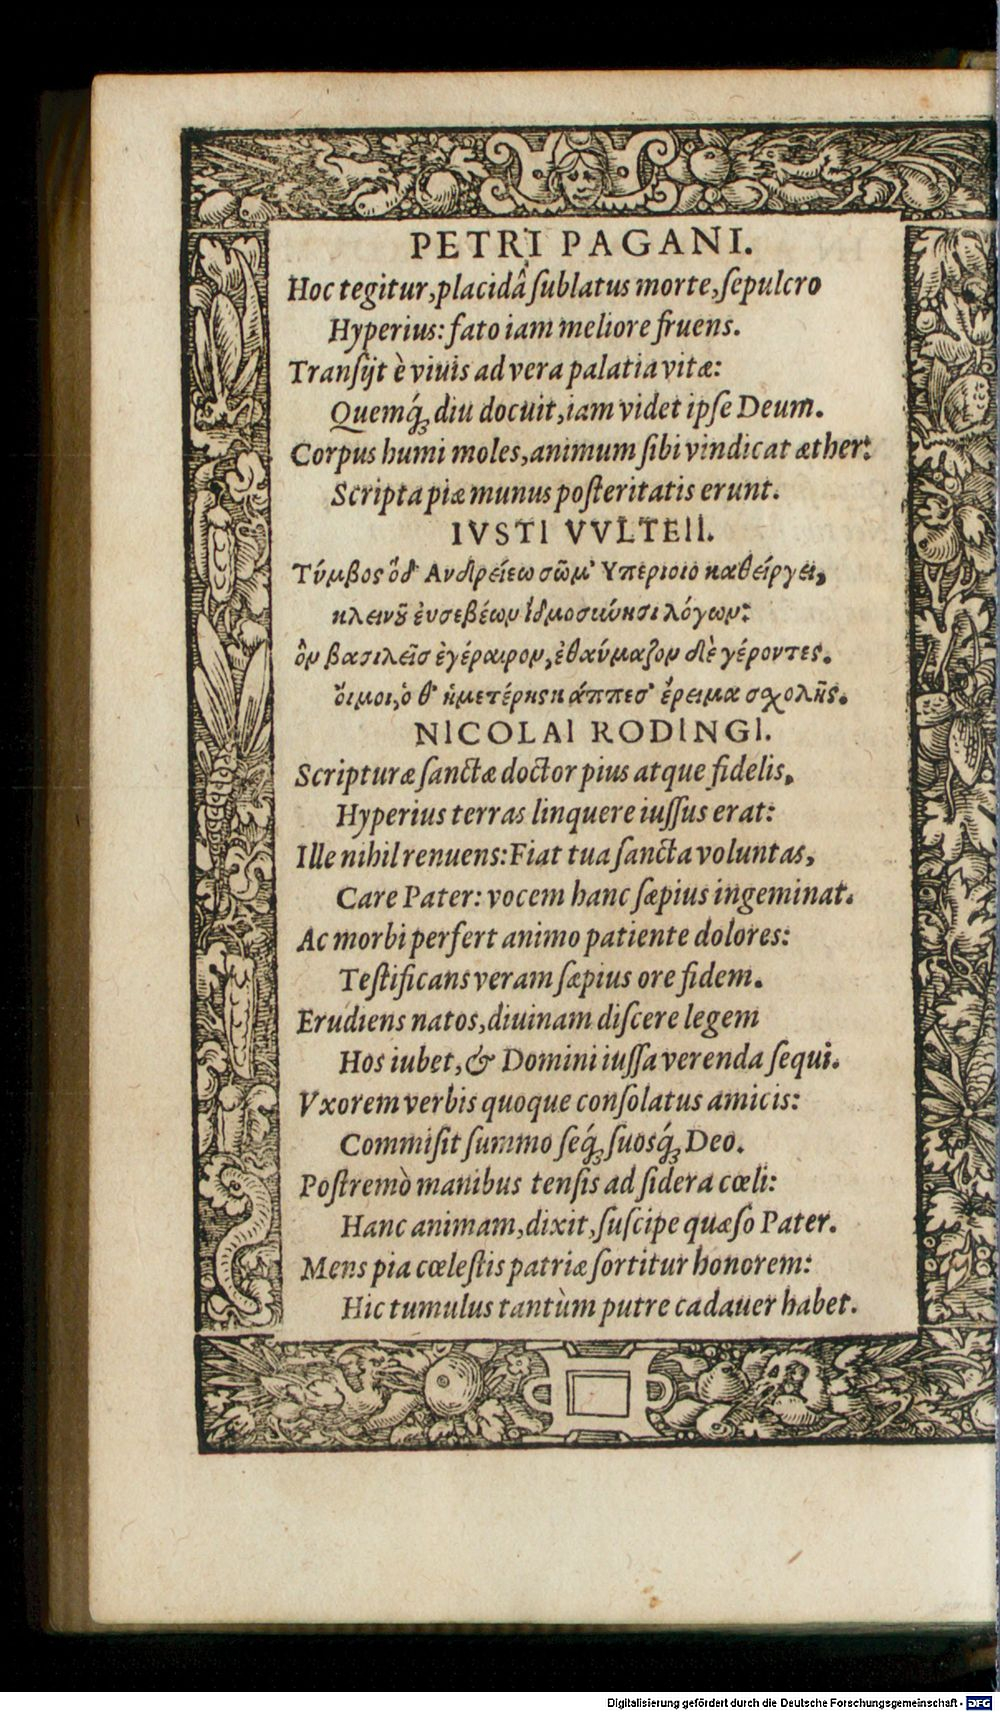 PETRI PAGANI.
Hoc tegitur, placidâ ſublatus morte, ſepulcro
Hyperius: fato iam meliore fruens.
Tranſijt è viuis ad vera palatia vitæ:
Quemq́ꝫ diu docuit, iam videt ipſe Deum.
Corpus humi moles, animum ſibi vindicat æther:
Scripta piæ munus poſteritatis erunt.
IVSTI VVLTEII.
Τύμβος ὅδ' Ανδρείεω σῶμ' Υπεριοιο καθείργει,
κλεινȣ͂ ἐυσεβέων ἰδμοσιώησι λόγων:
ὃν βασιλεῖσ ἐγέραιρον, ἐθαύμαζον δὲ γέροντες.
ὄιμοι, ὁ θ' ἡμετέρης κάππεσ' ἔρεισμα σχολῆς.
NICOLAI RODINGI.
Scripturæ ſanctæ doctor pius atque fidelis,
Hyperius terras linquere iuſſus erat:
Ille nihil renuens: Fiat tua ſancta voluntas,
Care Pater: vocem hanc ſæpius ingeminat.
Ac morbi perfert animo patiente dolores:
Teſtificans veram ſæpius ore fidem.
Erudiens natos, diuinam diſcere legem
Hos iubet, & Domini iuſſa verenda ſequi.
Vxorem verbis quoque conſolatus amicis:
Commiſit ſummo ſeq́ꝫ ſuosq́ꝫ Deo.
Poſtremò manibus tenſis ad ſidera cœli:
Hanc animam, dixit, ſuſcipe quæſo Pater.
Mens pia cœleſtis patriæ ſortitur honorem:
Hic tumulus tantùm putre cadauer habet.
Digitalisierung gefördert durch die Deutsche Forschungsgemeinschaft - DFG